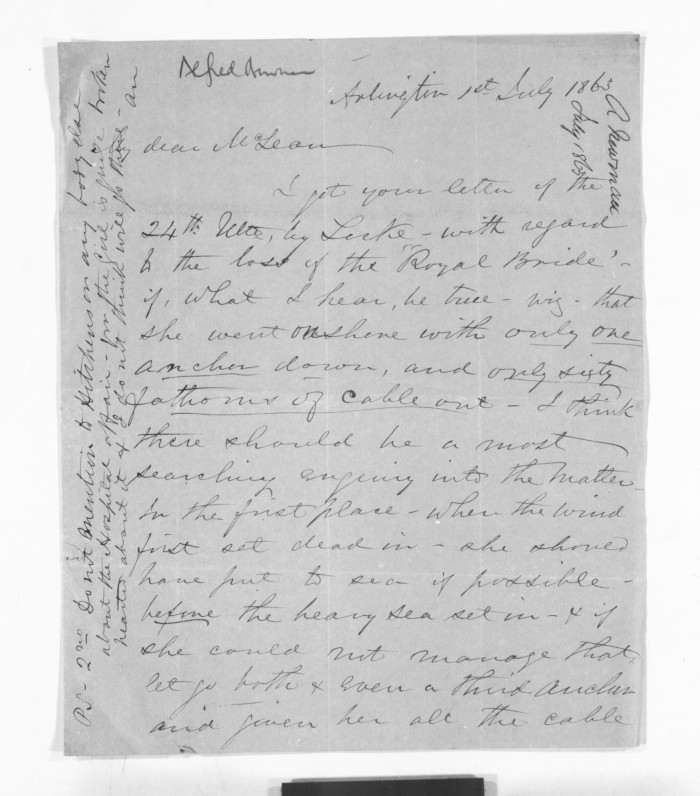 Alfred Newman
Arlington 1st July 1863
A Newman
July 1863
dear McLean
I got your letter of the
24th Ulto, by Locke - with regard
to the loss of the "Royal Bride" -
if, what I hear, be true - viz - that
she went on shore with only one
anchor down, and only sixty
fathoms of cable out - I think
there should be a most
searching enquiry into the matter -
In the first place - when the wind
first set dead in - she should
have put to sea if possible -
before the heavy sea set in - & if
she could not manage that,
let go both & even a third anchor
and given her all the cable
PS - 2nd Do not mention to Hitchens or any body else
about the Hospital affair - for the girl is quite broken
hearted about it & I do not think will go there - an